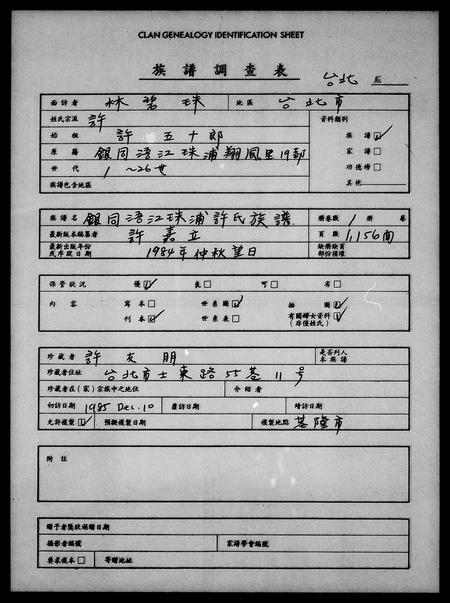 CLAN GENEALOGY IDENTIFICATION SHEET
族譜調查表
台北 縣
面訪者 林碧珠 地區 台北市
姓氏宗派 許 資料類別
始祖 許五十郎 族譜☑
原籍 銀同浯江珠浦翔風里19都 家譜□
世代 1~26世 功德榜□
族譜包含地區 其他
族譜名 銀同浯江珠浦許氏族譜 冊卷數 1 冊 卷
最新版本編纂者 許嘉立 頁數 1,156面
最新出版年份或序跋日期 1984年仲秋望日 缺冊缺頁部份損壞
保管狀況 優☑ 良□ 可□ 劣□
內容 寫本□ 世系圖☑ 插圖☑
刊本☑ 世系表□ 有關婦女資料☑(非僅姓氏)
珍藏者 許友朋 是否列入本族譜
珍藏者住址 台北市士東路55巷11号
珍藏者在(家)宗族中之地位 介紹者
初訪日期 1985 Dec. 10 覆訪日期 續訪日期
允許複製☑ 預擬複製日期 複製地點 基隆市
附註
贈予者獎狀頒贈日期
攝影者編號 家譜學會編號
要求復本□ 寄贈地址